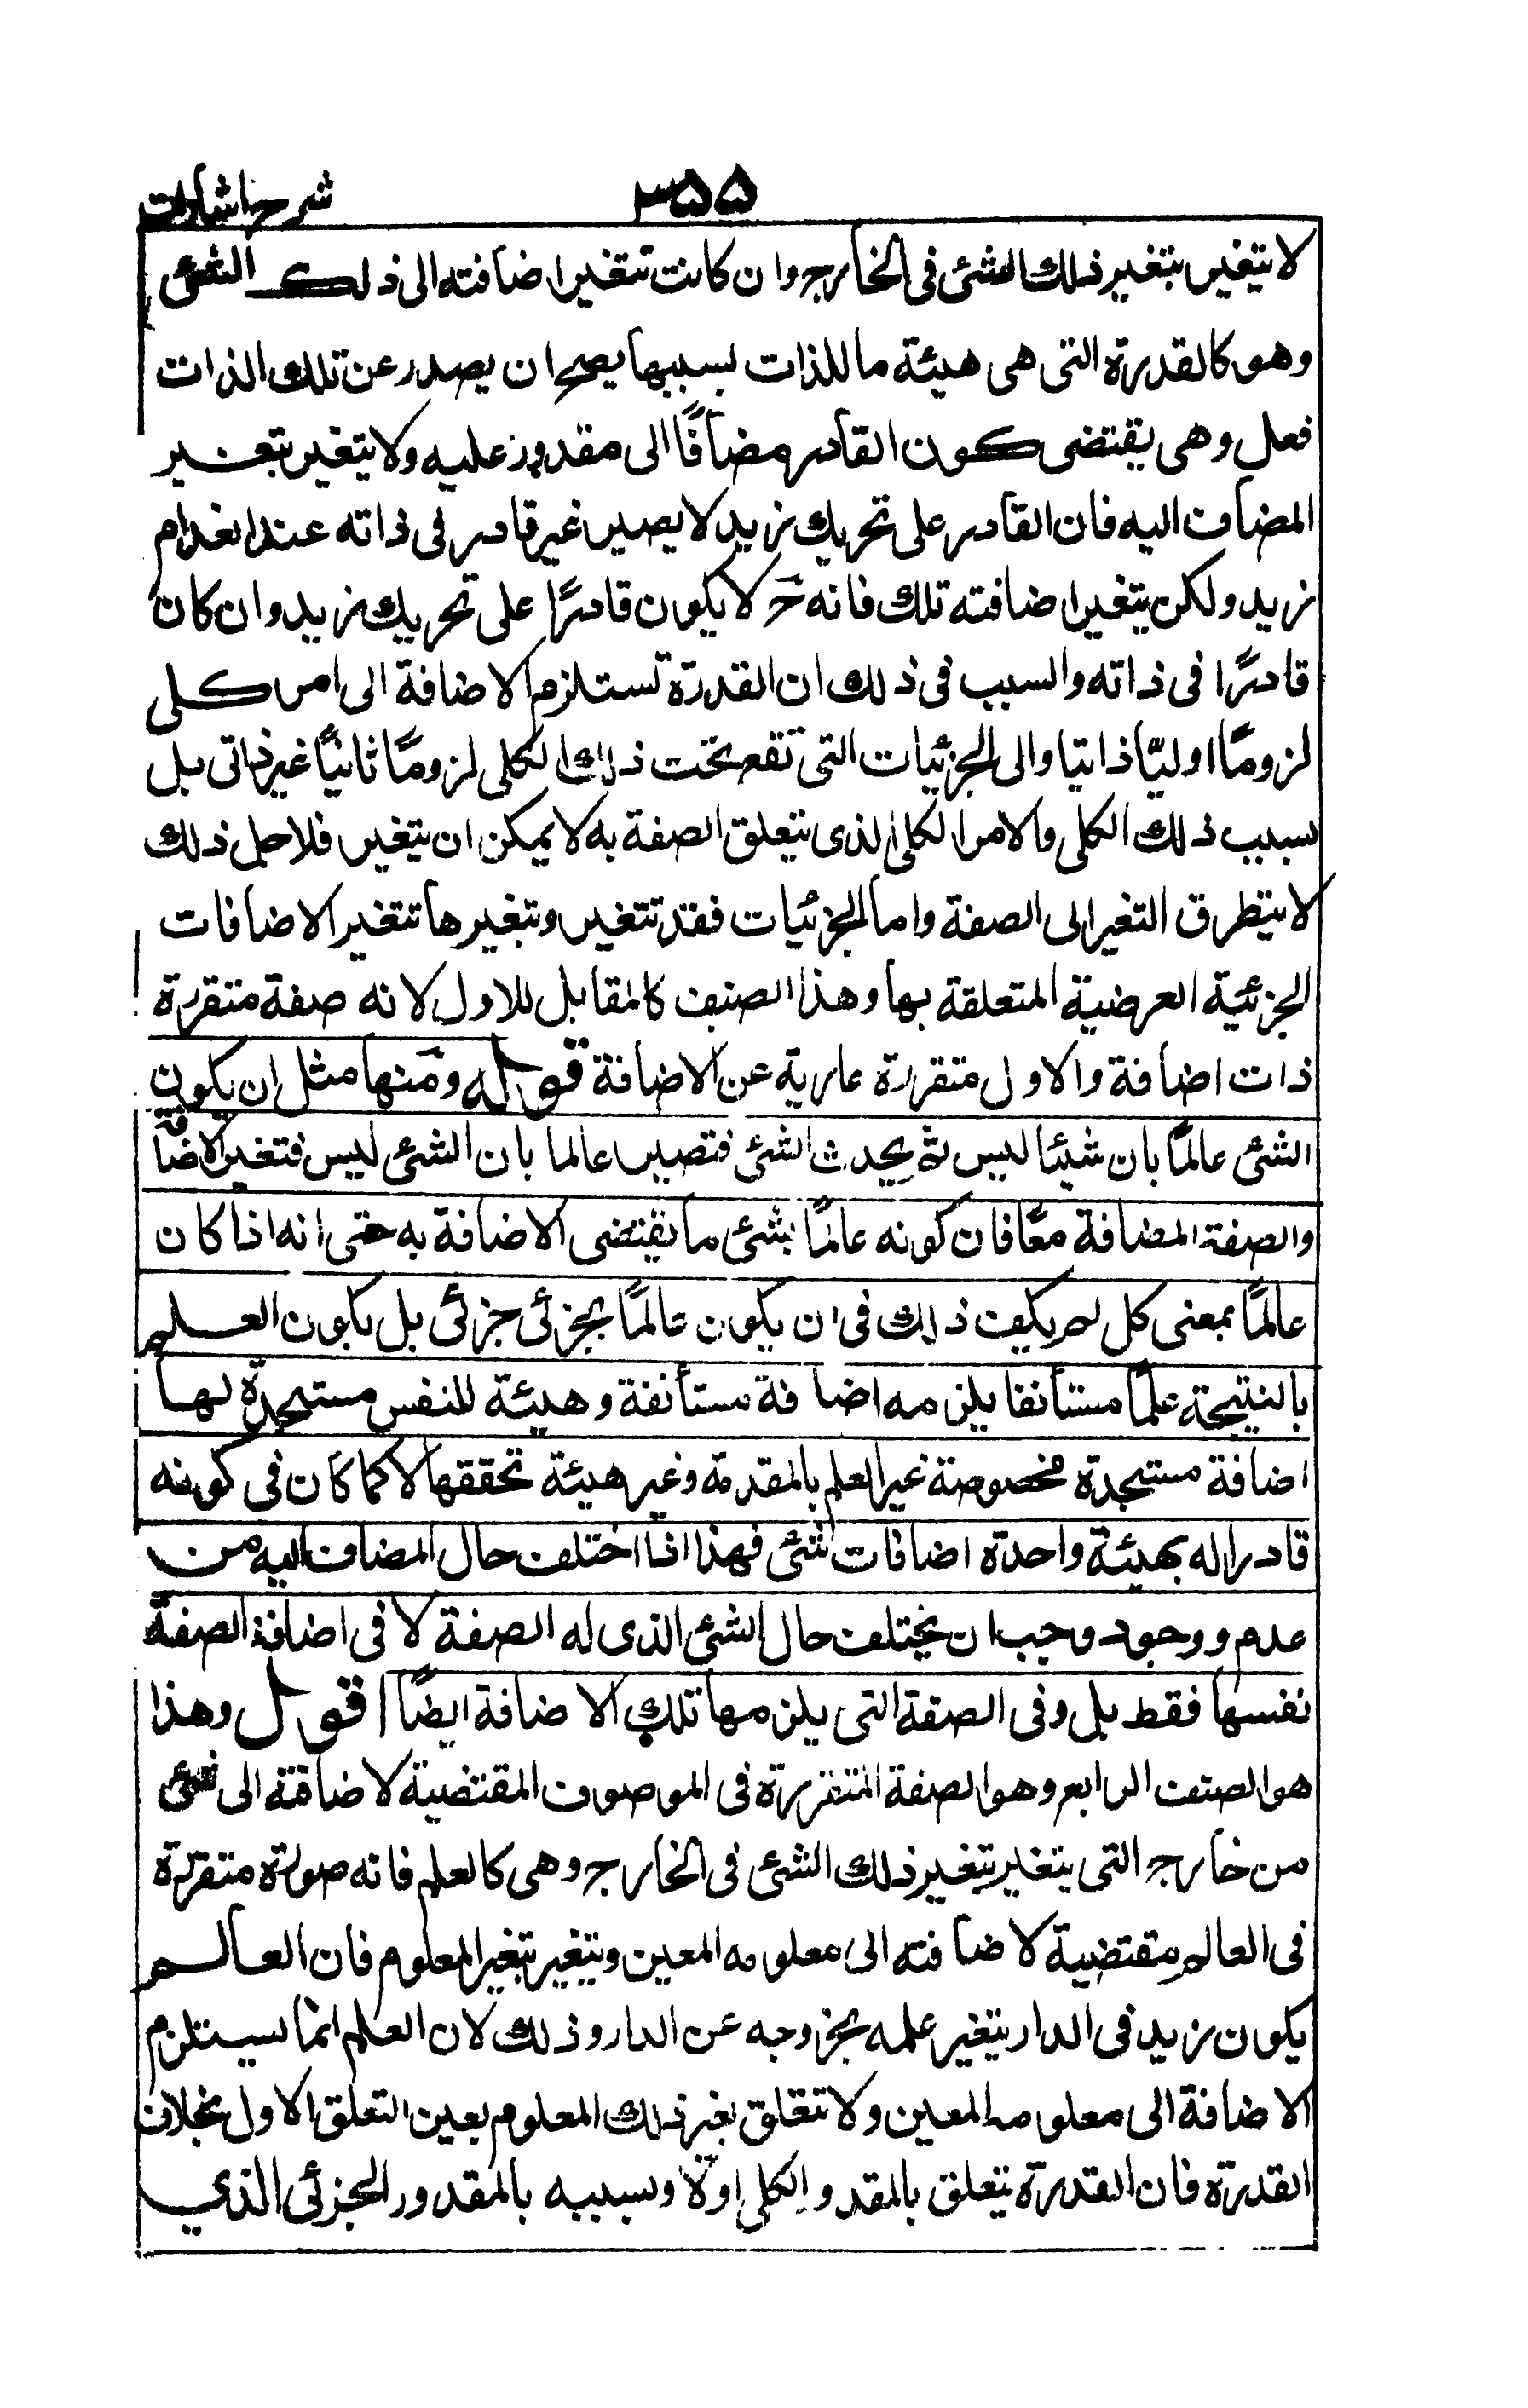 شرح اشارات ۳۵۵
لا يتغير بتغير ذلك الشئ فى الخارج وان كانت تتغير اضافته الى ذلك الشئ
وهو كالقدرة التى هى هيئة ما للذات بسببها يصح ان يصدر عن تلك الذات
فعل وهى يقتضى كون القادر مضافًا الى مقدور عليه ولا يتغير بتغير
المضاف اليه فان القادر على تحريك زيد لا يصير غير قادر فى ذاته عند انعدام
زيد ولكن يتغير اضافته تلك فانه ح لا يكون قادرًا على تحريك زيد وان كان
قادرًا فى ذاته والسبب فى ذلك ان القدرة تستلزم الاضافة الى امر كلى
لزومًا اوليّا ذاتيا والى الجزئيات التى تقع تحت ذلك الكلى لزومًا ثانيًا غير ذاتى بل
بسبب ذلك الكلى والامر الكلى الذى يتعلق الصفة به لا يمكن ان يتغير فلاجل ذلك
لا يتطرق التغير الى الصفة واما الجزئيات فقد تتغير وبتغيرها تتغير الاضافات
الجزئية العرضية المتعلقة بها وهذا الصنف كالمقابل للاول لانه صفة متقررة
ذات اضافة والاول متقررة عارية عن الاضافة قوله ومنها مثل ان يكون
الشئ عالمًا بان شيئا ليس ثم يحدث الشئ فتصير عالما بان الشئ ليس فتغير الاضافة
والصفة المضافة معًا فان كونه عالمًا بشئ ما يقتضى الاضافة به حتى انه اذا كان
عالمًا بمعنى كل لم يكف ذلك فى ان يكون عالمًا بجزئى جزئى بل يكون العلم
بالنتيجة علمًا مستأنفا يلزمه اضافة مستأنفة وهيئة للنفس مستجدّة لها
اضافة مستجدة مخصوصة غير العلم بالمقدمة وغير هيئة تحققها لا كما كان فى كونه
قادرا له بهيئة واحدة اضافات شئ فهذا اذا اختلف حال المضاف اليه من
عدم ووجود وجب ان يختلف حال الشئ الذى له الصفة لا فى اضافة الصفة
نفسها فقط بل وفى الصفة التى يلزمها تلك الاضافة ايضًا اقول وهذا
هو الصنف الرابع وهو الصفة المتقررة فى الموصوف المقتضية لاضافته الى شئ
من خارج التى يتغير بتغير ذلك الشئ فى الخارج وهى كالعلم فانه صورة متقررة
فى العالم مقتضية لاضافته الى معلومه المعين ويتغير بتغير المعلوم فان العالم
يكون زيد فى الدار يتغير علمه بخروجه عن الدار وذلك لان العلم انما يستلزم
الاضافة الى معلومه المعين ولا تتعلق بغير ذلك المعلوم بعين التعلق الاول بخلاف
القدرة فان القدرة يتعلق بالمقدور الكلى اوّلا وبسببه بالمقدور الجزئى الذي